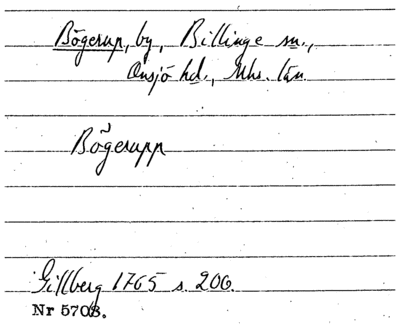 Bögerup, by, Billinge sn.,
Onsjö hd., Mhs. län.
Bögerupp
Gillberg 1765 s. 206.
Nr 5708.